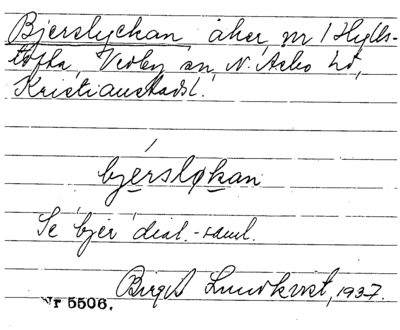 Bjerslyckan, åker nr 1 Hylls-
tofta, Vedby sn, N. Åsbo hd,
Kristianstads l.
bjersløkan
Se bjer dial.-saml.
Birgit Lundkvist, 1937.
Nr 5506.